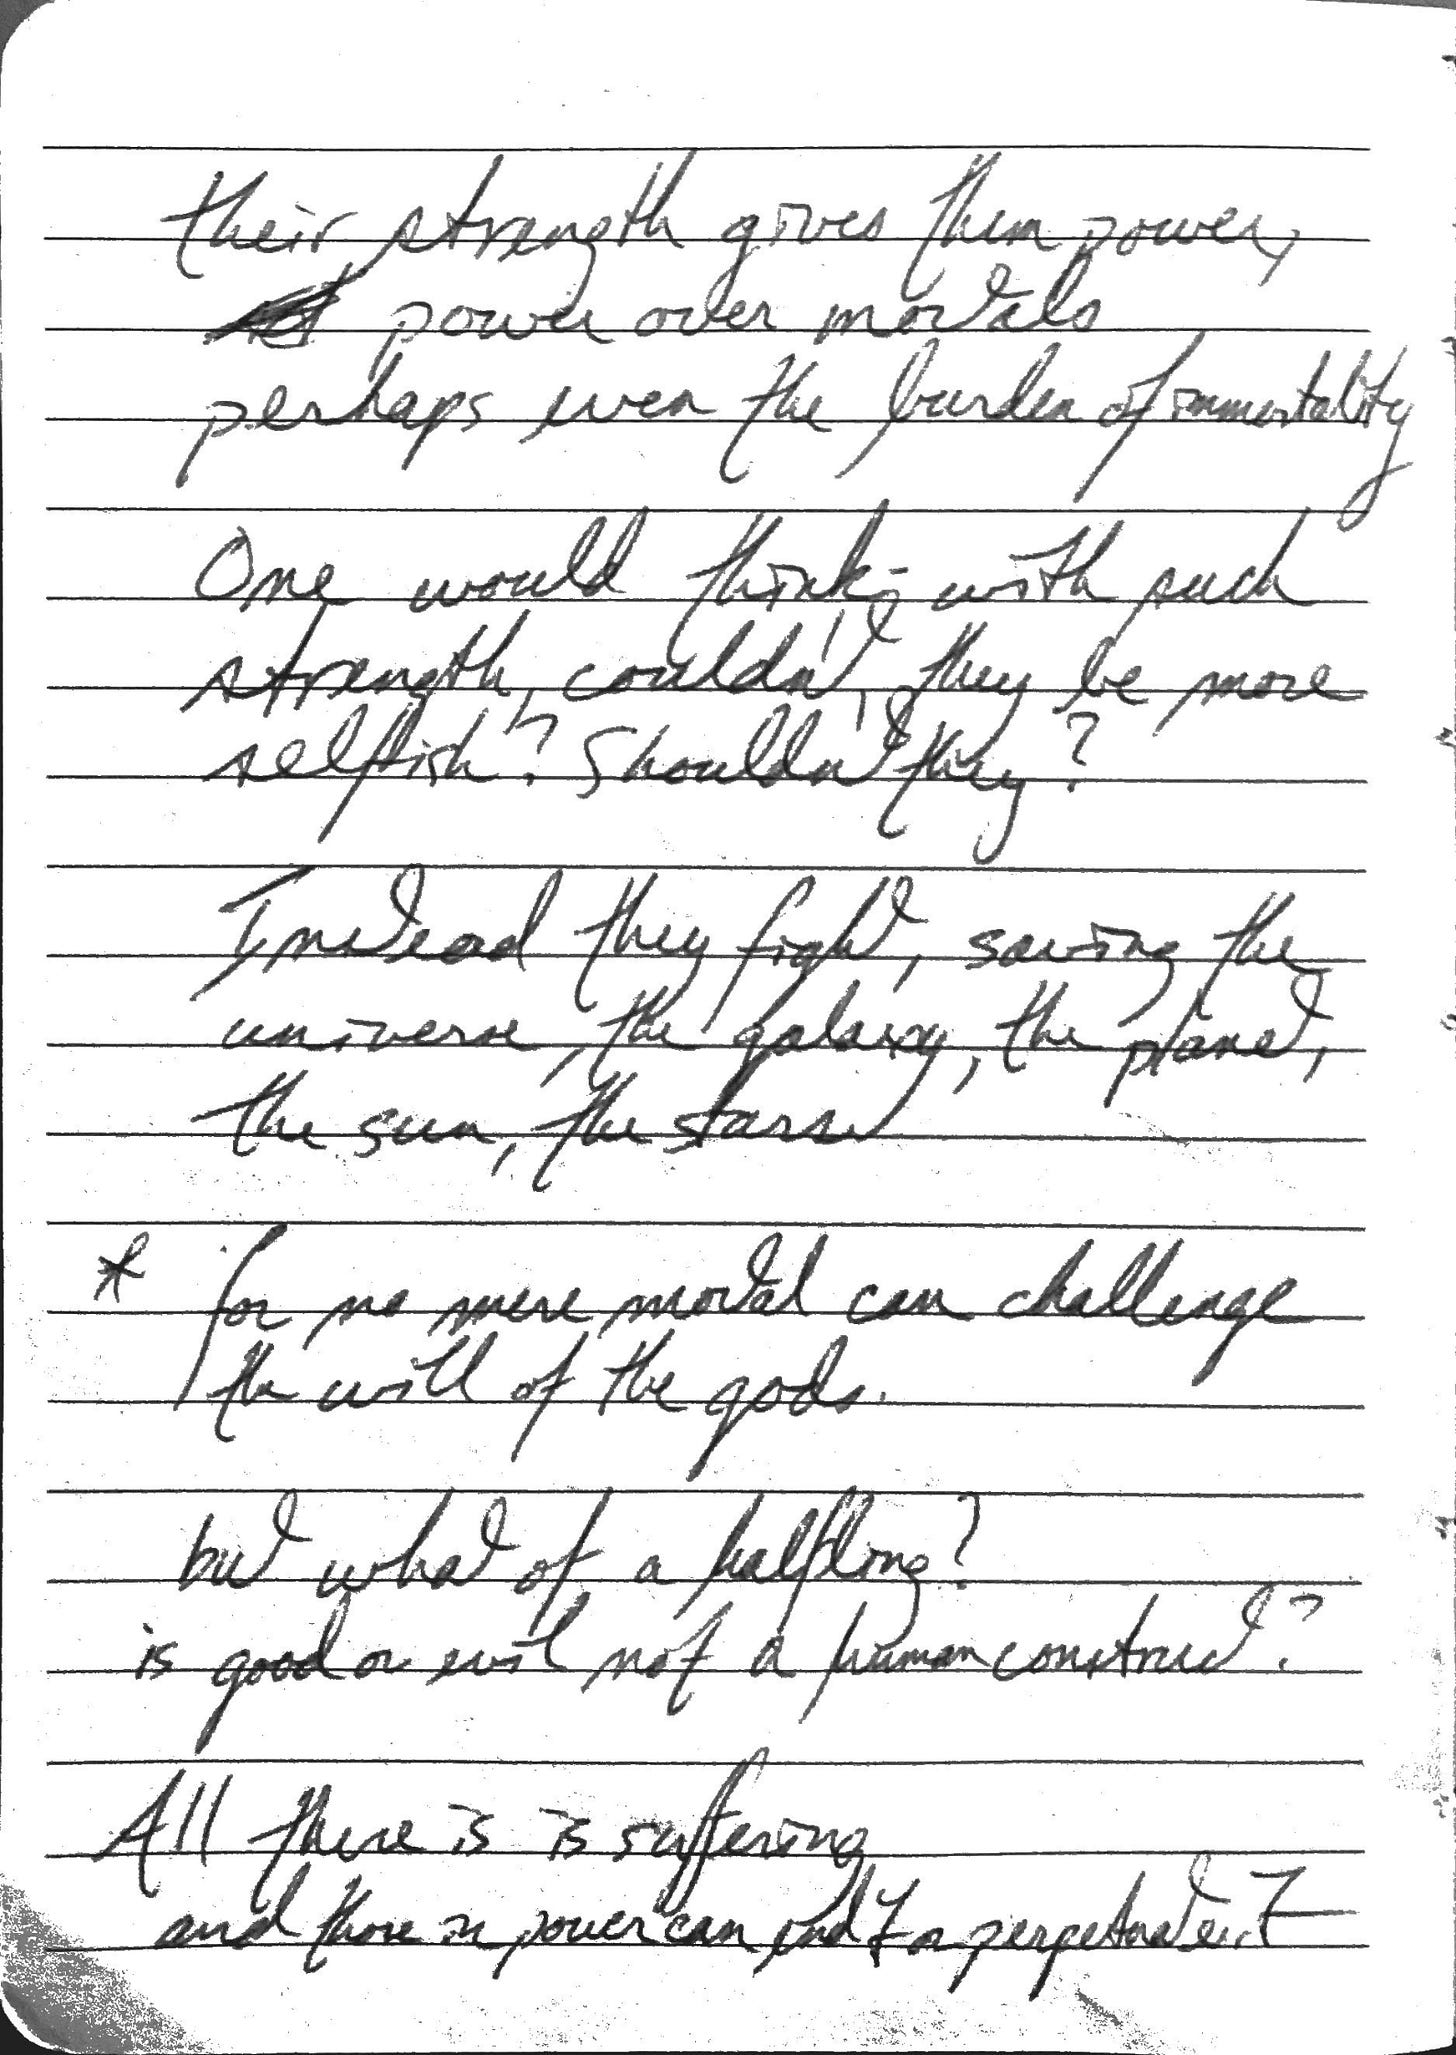 their strength gives them power,
power over mortals
perhaps even the burden of immortality
One would think; with such
strength, couldn't they be more
selfish? Shouldn't they?
Instead they fight, saving the
universe, the galaxy, the planet,
the sun, the stars
* for no mere mortal can challenge
the will of the gods.
but what of a halfling?
is good or evil not a human construct?
All there is is suffering
and those in power can end it or perpetuate it